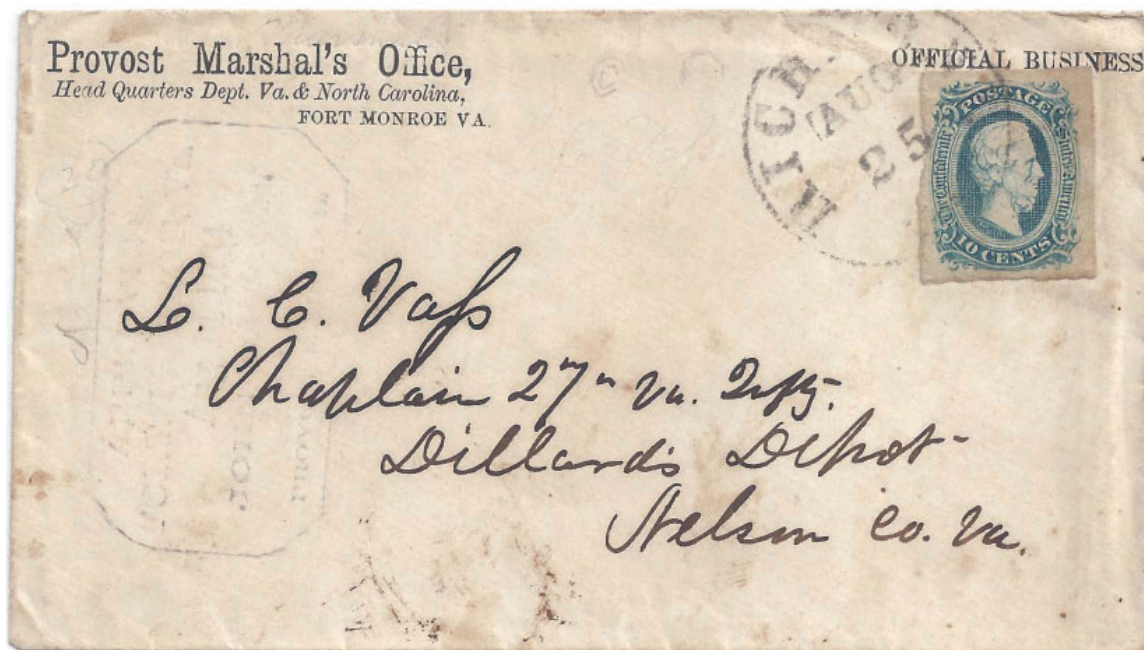 Provost Marshal's Office,
Head Quarters Dept. Va. & North Carolina,
FORT MONROE VA.
OFFICIAL BUSINESS
RICH
AUG
25
POSTAGE
The Confederate States of America
10 CENTS
L. C. Vass
Chaplain 27th Va. Infty.
Dillard's Depot
Nelson Co. Va.